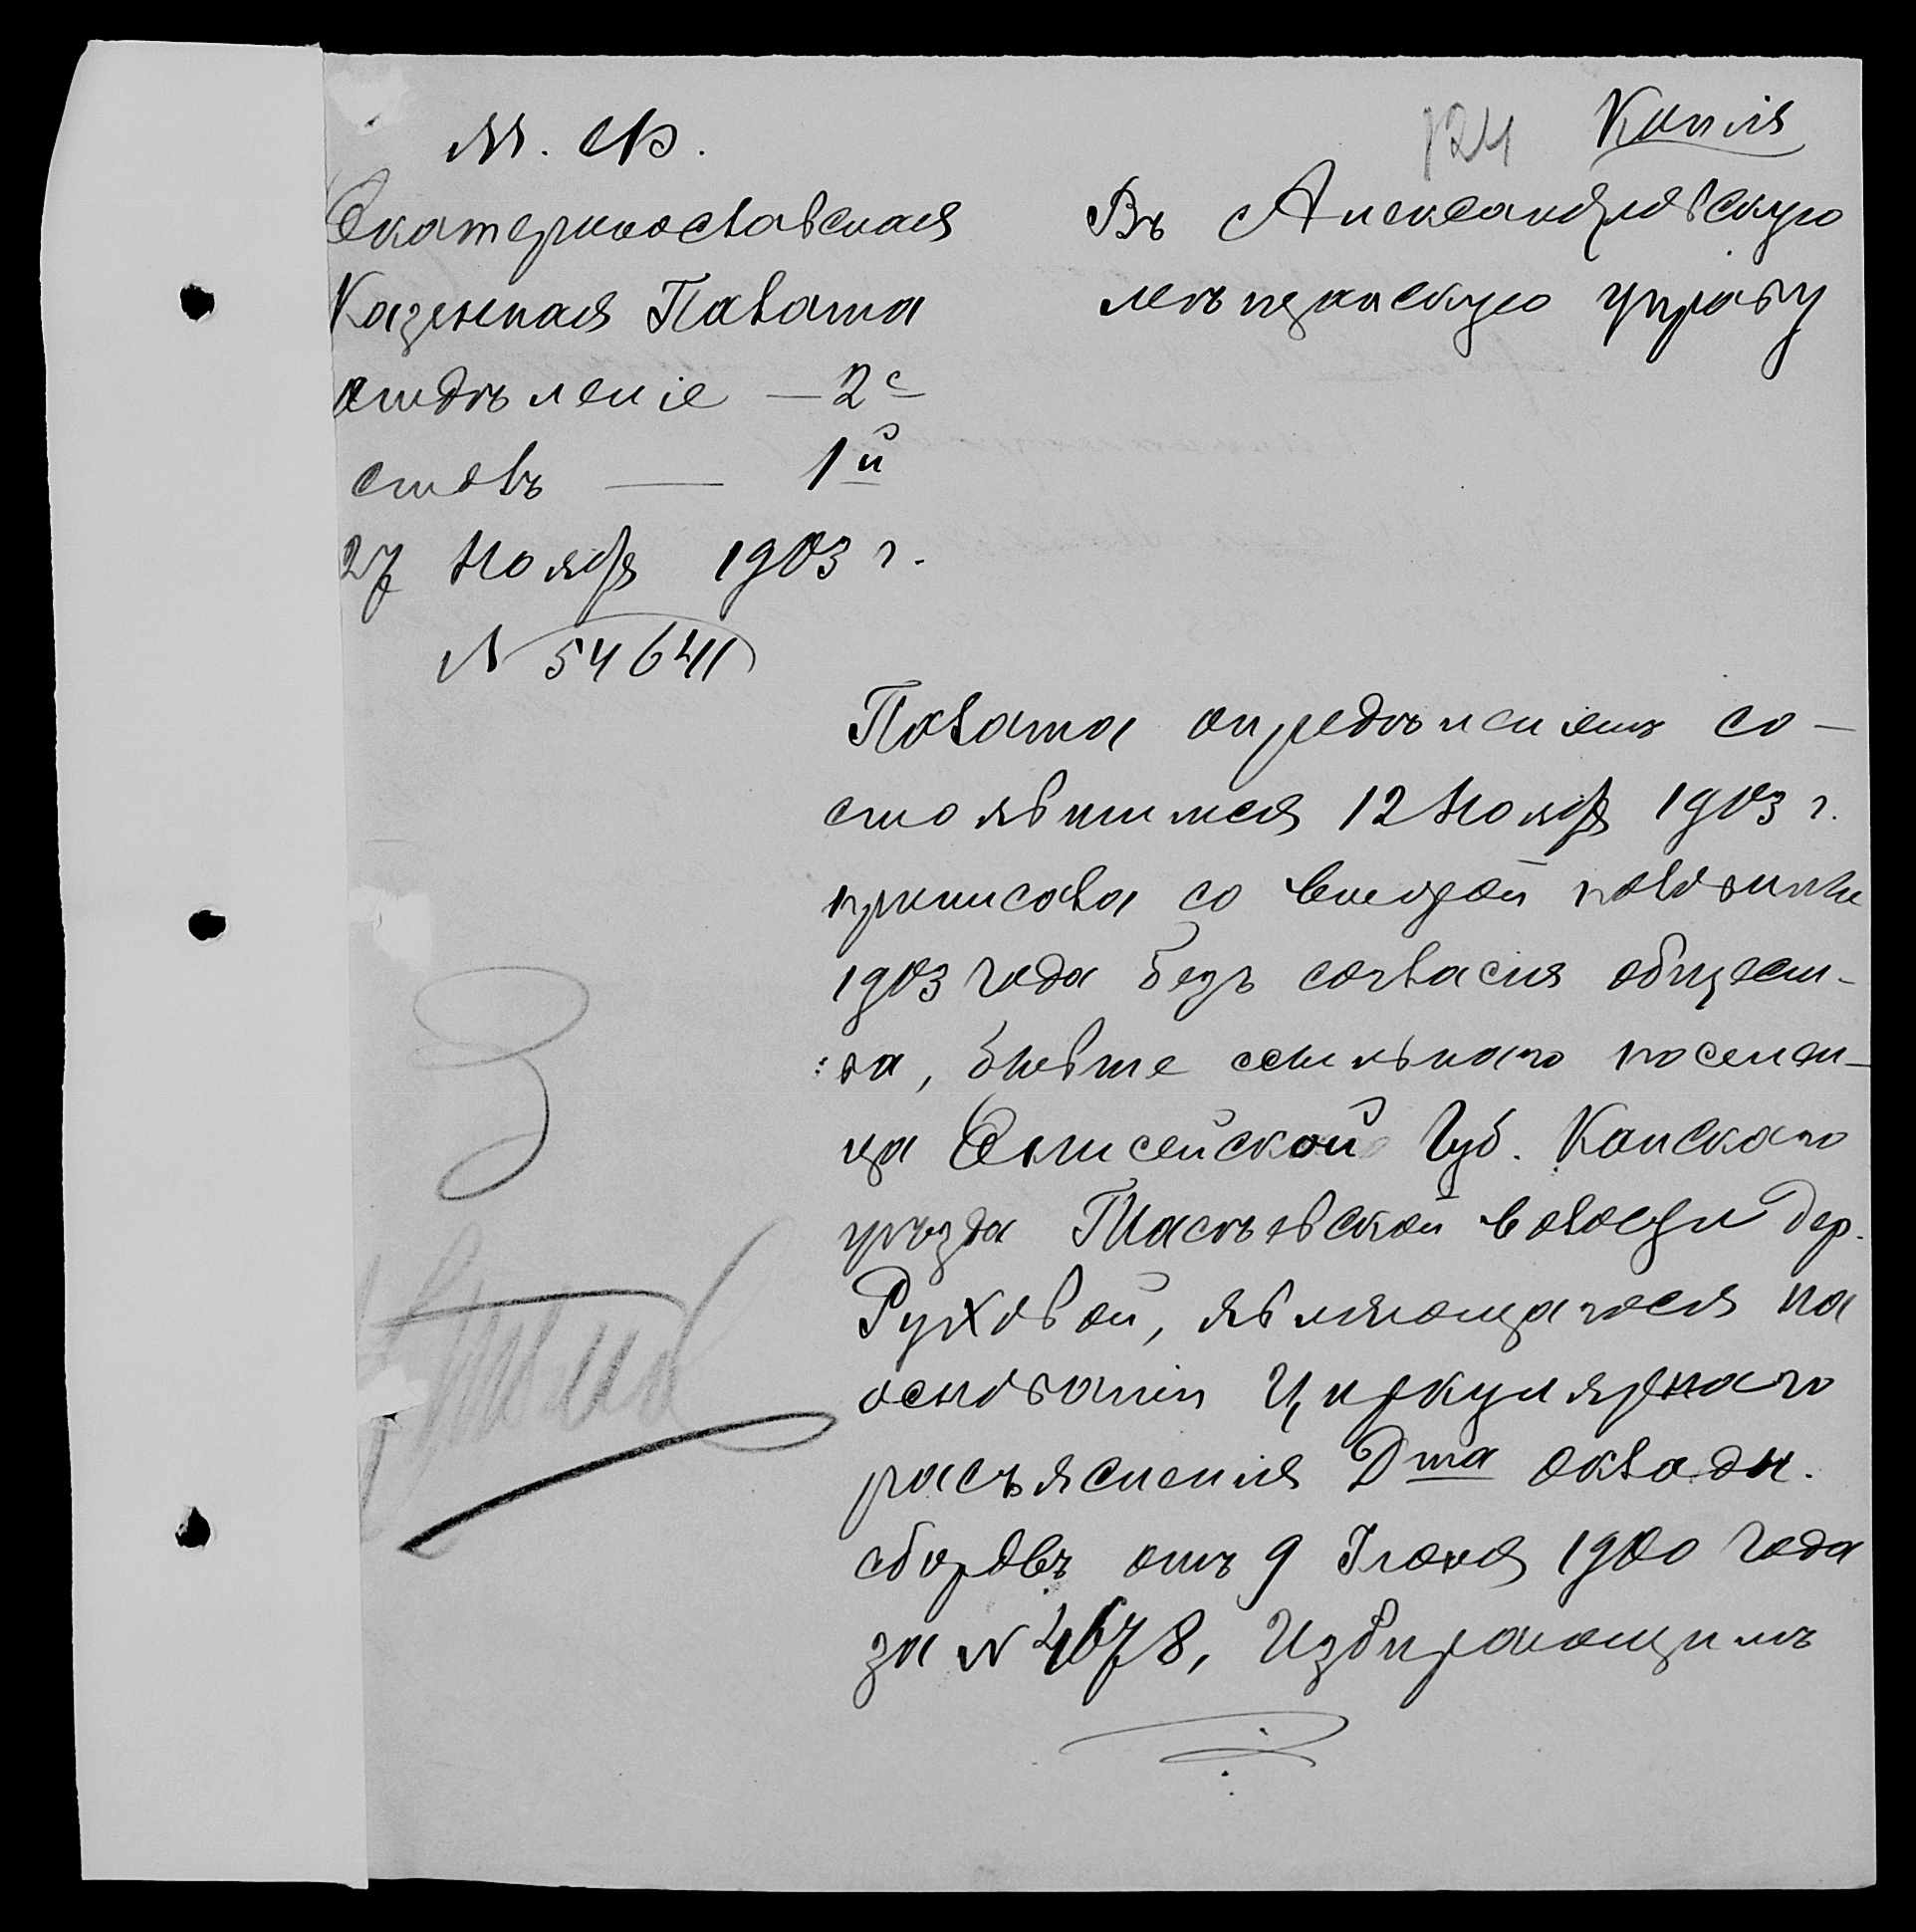 124 Копія
М. Ф.
Екатеринославская
Казенная Палата
отдѣленіе — 2е
столъ — 1й
27 Ноября 1903 г.
№ 54641
Въ Александровскую
мѣщанскую управу
Палата опредѣленіемъ со-
стоявшимся 12 Ноября 1903 г.
приписала со второй половины
1903 года безъ согласія общест-
ва, бывше ссыльнаго поселен-
ца Енисейской Губ. Канскаго
уѣзда Тасѣевской волости дер.
Руховой, являющагося на
основаніи Циркулярнаго
расъясненія Дта окладн.
сборовъ отъ 9 Іюня 1900 года
за № 4678, Избирающимъ